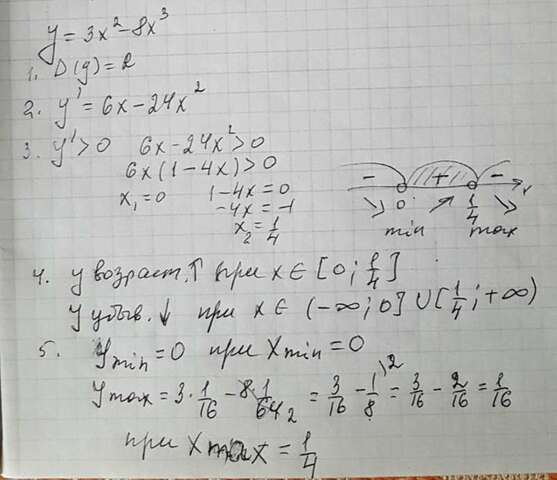 y = 3x² - 8x³
1. D(y) = R
2. y' = 6x - 24x²
3. y' > 0 6x - 24x² > 0
6x(1 - 4x) > 0
x₁ = 0 1 - 4x = 0
-4x = -1
x₂ = 1/4
- + -
0 1/4 x
min max
4. y возраст. ↑ при x ∈ [0; 1/4]
y убыв. ↓ при x ∈ (-∞; 0] ∪ [1/4; +∞)
5. y min = 0 при x min = 0
y max = 3 · 1/16 - 8 1/64 2 = 3/16 - 1/8 \2 = 3/16 - 2/16 = 1/16
при x max = 1/4